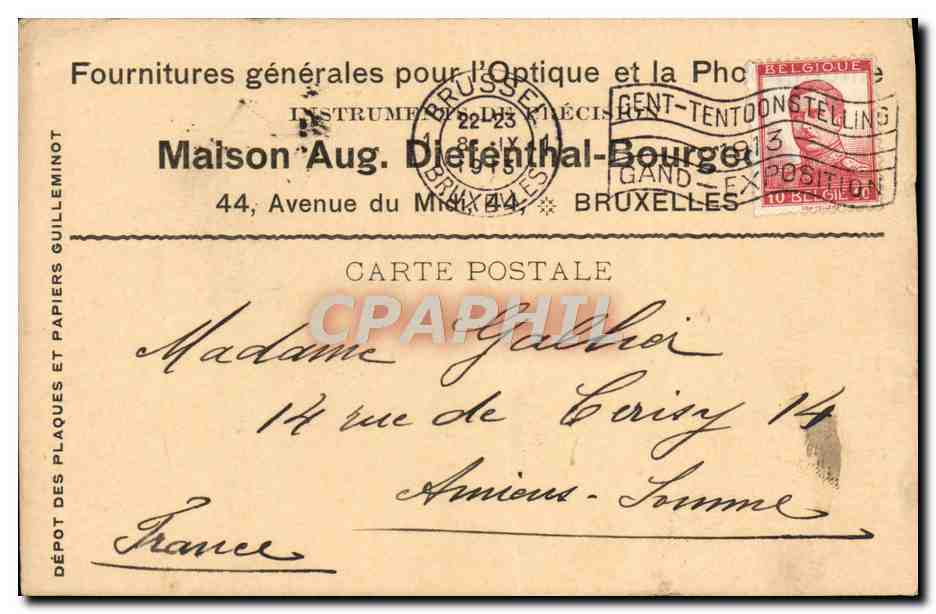 Fournitures générales pour l'Optique et la
INSTRUMENTS DE PRÉCISION
Maison Aug. Diefenthal-Bourgeo
44, Avenue du Midi, 44, BRUXELLES
BRUSSEL
1 22-23 1
8 IX
1913
BRUXELLES
GENT-TENTOONSTELLING
1913
GAND-EXPOSITION
BELGIQUE
10 BELGIË 10
DÉPOT DES PLAQUES ET PAPIERS GUILLEMINOT
CARTE POSTALE
CPAPHIL
Madame
14 rue de Cerisy 14
Amiens - Somme
France